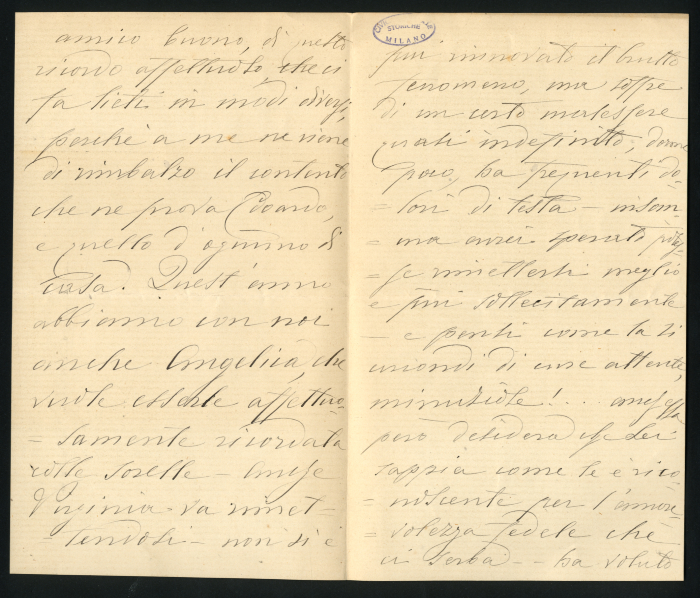 amico buono, di questo
ricordo affettuoso, che ci
fa lieti in modi diversi,
perchè a me ne viene
di rimbalzo il contento
che ne prova Edoardo,
e quello d'ognuno di
casa. Quest'anno
abbiamo con noi
anche Angelica, che
vuole esserle affettuo-
- samente ricordata
colle sorelle - anche
Virginia va rimet-
- tendosi - non si è
più rinnovato il brutto
fenomeno, ma soffre
di un certo malessere
quasi indefinito, dorme
poco, ha frequenti do-
= lori di testa - insom-
= ma avrei sperato
= se rimettersi meglio
e più sollecitamente
- e pensi come la si
circondi di cure attente,
minuziose! . . anch'essa
però desidera che Lei
sappia come le è rico-
= noscente per l'amore-
= volezza fedele che
ci serba - - ha voluto
CIVICHE
STORICHE
MILANO